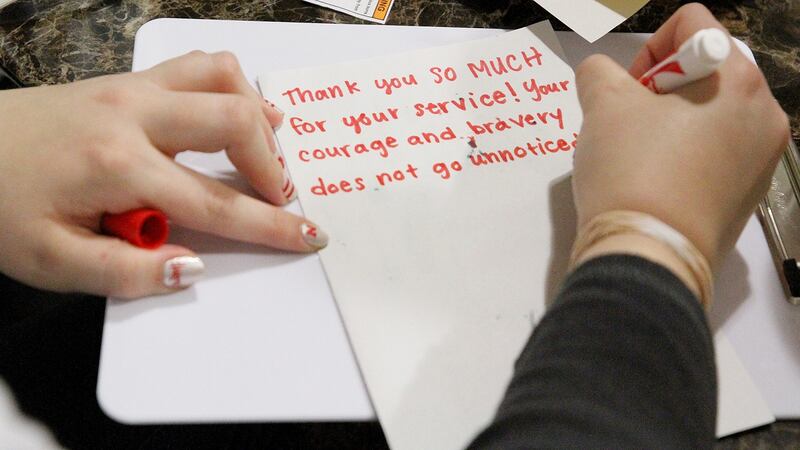 Thank you SO MUCH
for your service! Your
courage and bravery
does not go unnoticed